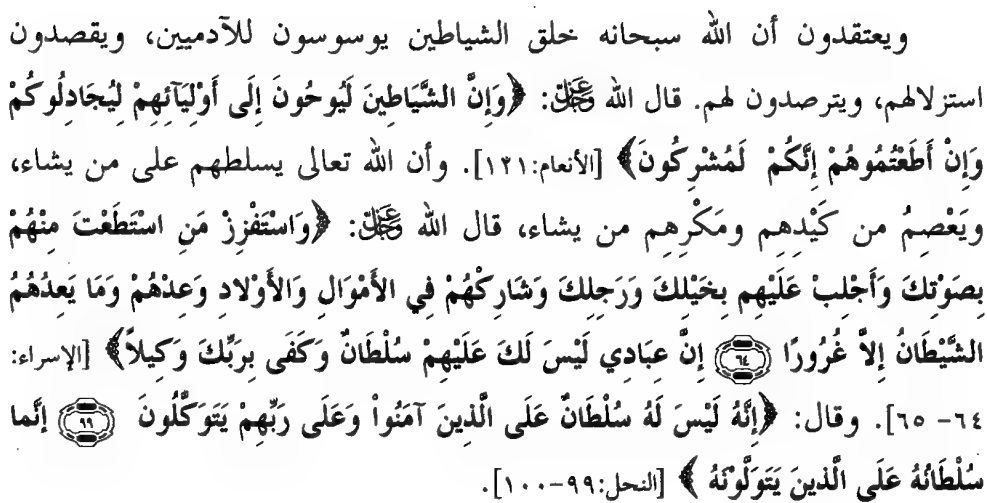 ويعتقدون أن الله سبحانه خلق الشياطين يوسوسون للآدميين، ويقصدون
استزلالهم، ويترصدون لهم. قال الله عَزَّوَجَلَّ: ﴿وَإِنَّ الشَّيَاطِينَ لَيُوحُونَ إِلَى أَوْلِيَآئِهِمْ لِيُجَادِلُوكُمْ
وَإِنْ أَطَعْتُمُوهُمْ إِنَّكُمْ لَمُشْرِكُونَ﴾ [الأنعام:١٢١]. وأن الله تعالى يسلطهم على من يشاء،
ويَعْصِمُ من كَيْدِهِم ومَكْرِهِم من يشاء، قال الله عَزَّوَجَلَّ: ﴿وَاسْتَفْزِزْ مَنِ اسْتَطَعْتَ مِنْهُمْ
بِصَوْتِكَ وَأَجْلِبْ عَلَيْهِم بِخَيْلِكَ وَرَجِلِكَ وَشَارِكْهُمْ فِي الأَمْوَالِ وَالأَوْلادِ وَعِدْهُمْ وَمَا يَعِدُهُمُ
الشَّيْطَانُ إِلاَّ غُرُورًا ٦٤ إِنَّ عِبَادِي لَيْسَ لَكَ عَلَيْهِمْ سُلْطَانٌ وَكَفَى بِرَبِّكَ وَكِيلاً﴾ [الإسراء:
٦٤- ٦٥]. وقال: ﴿إِنَّهُ لَيْسَ لَهُ سُلْطَانٌ عَلَى الَّذِينَ آمَنُواْ وَعَلَى رَبِّهِمْ يَتَوَكَّلُونَ ٩٩ إِنَّما
سُلْطَانُهُ عَلَى الَّذِينَ يَتَوَلَّوْنَهُ ﴾ [النحل:٩٩-١٠٠].